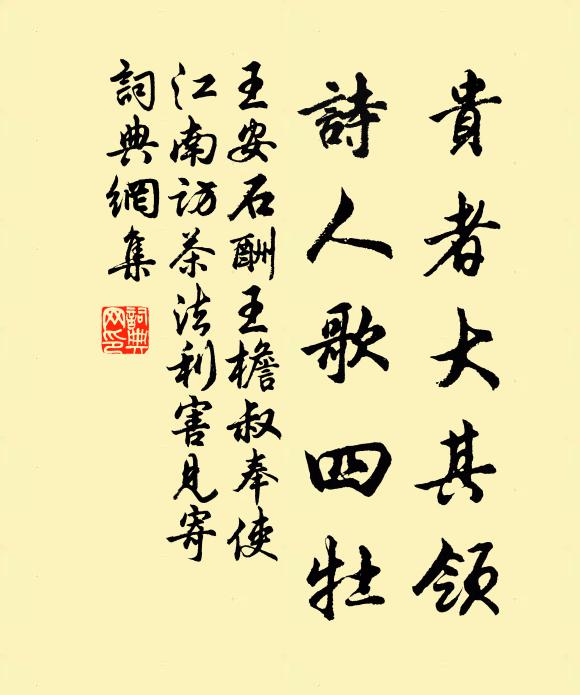 貴者大其領
詩人歌四牡
王安石酬王檐叔奉使
江南訪茶法利害見寄
詞典網集
詞典
网印